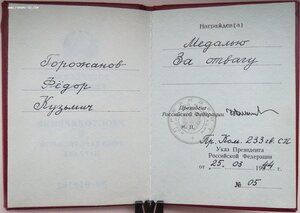 Горожанов
Фёдор
Кузьмич
Награжден(а)
Медалью
За отвагу
Президент
Российской Федерации
М. П.
Пр. Ком. 233 гв. СП
Указ Президента
Российской Федерации
от 25. 03 1944г.
№ 05